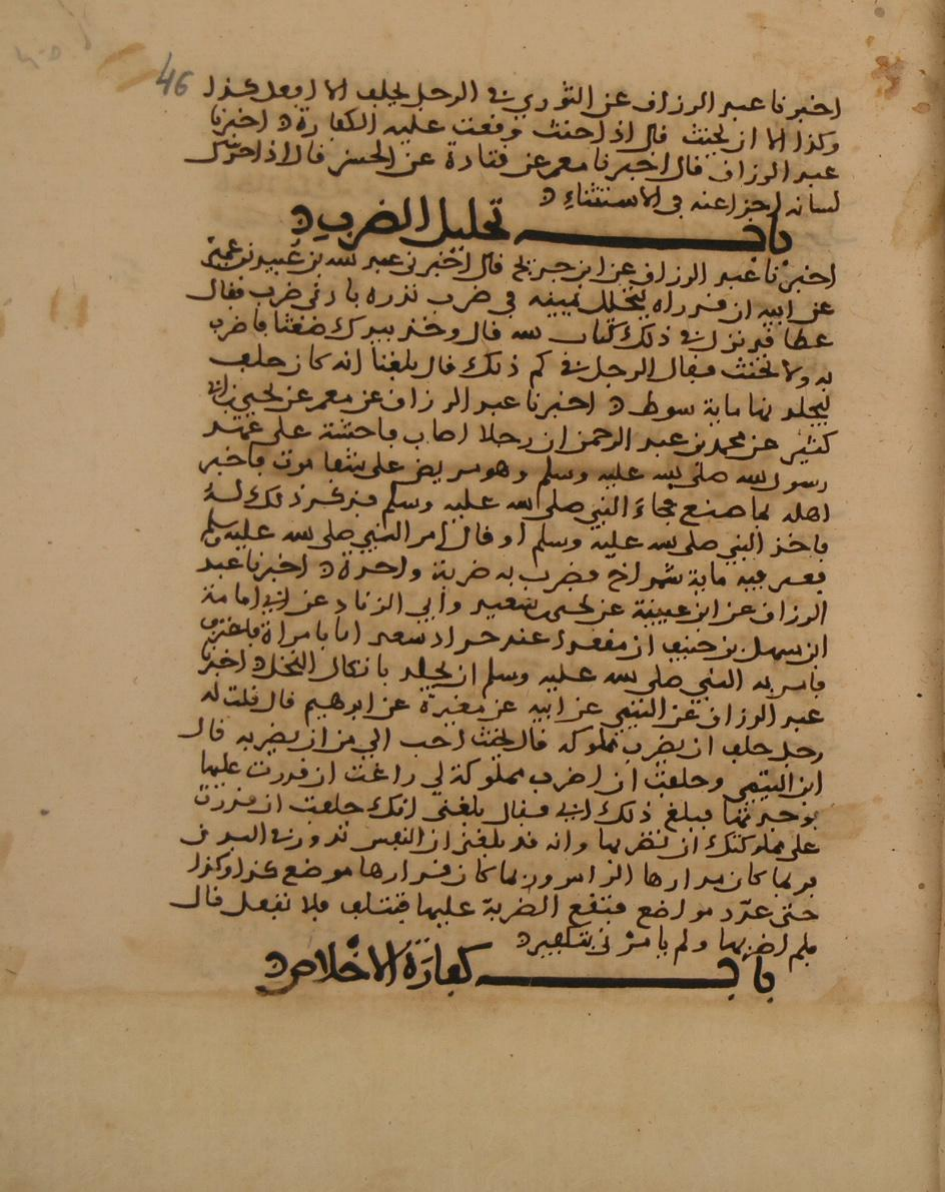 46
اخبرنا عبد الرزاق عن الثوري في الرجل يحلف الا افعل كذا
وكذا الا ان يحنث قال اذا حنث وقعت عليه الكفارة اخبرنا
عبد الرزاق قال اخبرنا معمر عن قتادة عن الحسن قال اذا حرك
لسانه اجزا عنه في الاستثناء
باب تحليل الضرب
اخبرنا عبد الرزاق عن ابن جريج قال اخبرني عبد الله بن عبيد بن عمير
عن ابيه ان قد راه يتحلل يمينه في ضرب نذره بادنى ضرب فقال
عطا قد نزل في ذلك كتاب الله قال وخذ بيدك ضغثا فاضرب
به ولا تحنث فقال الرجل في كم ذلك قال بلغنا انه كان حلف
ليجلدنها ماية سوط اخبرنا عبد الرزاق عن معمر عن يحيى بن ابي
كثير عن محمد بن عبد الرحمن ان رجلا اصاب فاحشة على عهد
رسول الله صلى الله عليه وسلم وهو مريض على شفا موت فاخبر
اهله بما صنع فجاء النبي صلى الله عليه وسلم فذكر ذلك له
فاخذ النبي صلى الله عليه وسلم او قال امر النبي صلى الله عليه وسلم
بقنو فيه ماية شمراخ فضرب به ضربة واحدة اخبرنا عبد
الرزاق عن ابن عيينة عن يحيى بن سعيد وابي الزناد عن ابي امامة
ابن سهل بن حنيف ان مقعدا عند جدار سعد اتا بامراة فاعترف
فامر به النبي صلى الله عليه وسلم ان يجلد باثكال النخل اخبرنا
عبد الرزاق عن التيمي عن ابيه عن مغيرة عن ابرهيم قال قلت له
رجل حلف ان يضرب مملوكه قال يحنث احب الي من ان يضربه قال
ابن التيمي وحلفت ان اضرب مملوكة لي راغت ان قدرت عليها
فوجدتها فبلغ ذلك ابي فقال بلغني انك حلفت ان قدرت
على مملوكتك ان تضربها وانه قد بلغني ان النفس تدور في البدن
فربما كان مدارها الراس وربما كان قرارها موضع كذا وكذا
حتى عدد مواضع فتقع الضربة عليها فتتلف فلا تفعل قال
فلم اضربها ولم يامرني بتكفير
باب كفارة الاخلاص